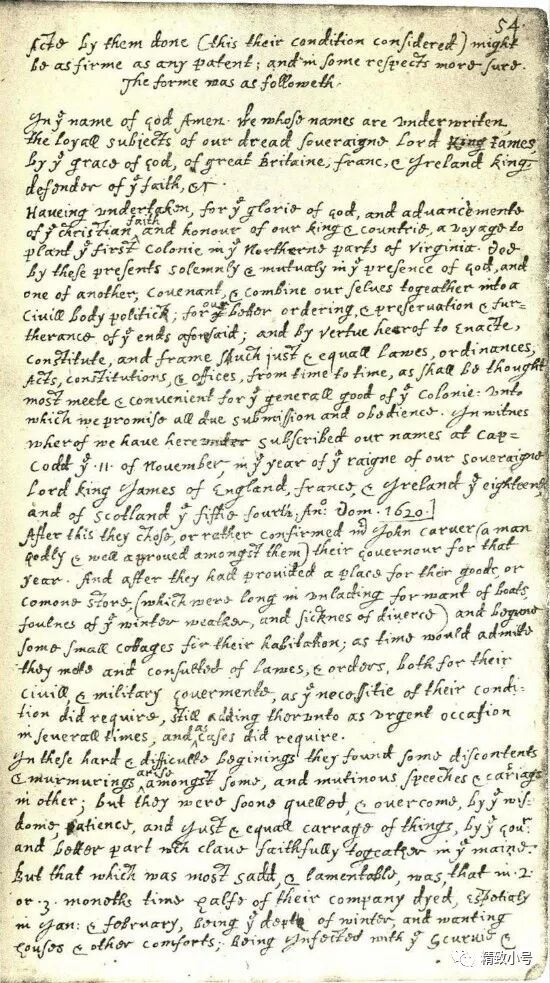 54.
Acts by them done (this their condition considered) might
be as firme as any patent; and in some respects more sure.
The forme was as followeth.
In yͤ name of god Amen. We whose names are underwriten,
the loyall subjects of our dread soveraigne Lord King James,
by yͤ grace of god, of great Britaine, franc, & Ireland king,
defender of yͤ faith, &c
Haveing undertaken, for yͤ glorie of god, and advancemente
of yͤ christian faith and honour of our king & countrie, a voyage to
plant yͤ first colonie in yͤ Northerne parts of Virginia. Doe
by these presents solemnly & mutualy in yͤ presence of god, and
one of another, covenant, & combine our selves togeather into a
civill body politick; for our better ordering, & preservation & fur-
therance of yͤ ends aforesaid; and by vertue hearof to Enacte,
constitute, and frame shuch just & equall lawes, ordinances,
Acts, constitutions, & offices, from time to time, as shall be thought
most meete & convenient for yͤ generall good of yͤ colonie: unto
which we promise all due submission and obedience. In witnes
wherof we have hereunder subscribed our names at Cap=
Codd yͤ .11. of November, in yͤ year of yͤ raigne of our soveraigne
Lord king James of England, france, & Ireland yͤ eighteenth
and of Scotland yͤ fiftie fourth. Anͦ: Dom. 1620.]
After this they chose, or rather confirmed mͬ John carver (a man
godly & well aproved amongst them) their governour for that
year. And after they had provided a place for their goods, or
comone store, (which were long in unlading for want of boats,
foulnes of yͤ winter weather, and sicknes of diverce) and begune
some small cottages for their habitation; as time would admitte
they mette and consulted of lawes, & orders, both for their
civill & military govermente, as yͤ necessitie of their condi-
tion did require, still adding therunto as urgent occasion
in severall times, and as cases did require.
In these hard & difficulte beginings they found some discontents
& murmurings arise amongst some, and mutinous speeches & cariags
in other; but they were soone quelled, & overcome, by yͤ wis-
dome, patience, and just & equall carrage of things, by yͤ govͬ
and better part wͨʰ clave faithfully togeather in yͤ maine.
But that which was most sadd, & lamentable, was, that in .2.
or .3. moneths time halfe of their company dyed, espetialy
in Jan: & february, being yͤ depth of winter, and wanting
houses & other comforts; being Infected with yͤ scurvie &
精致小号